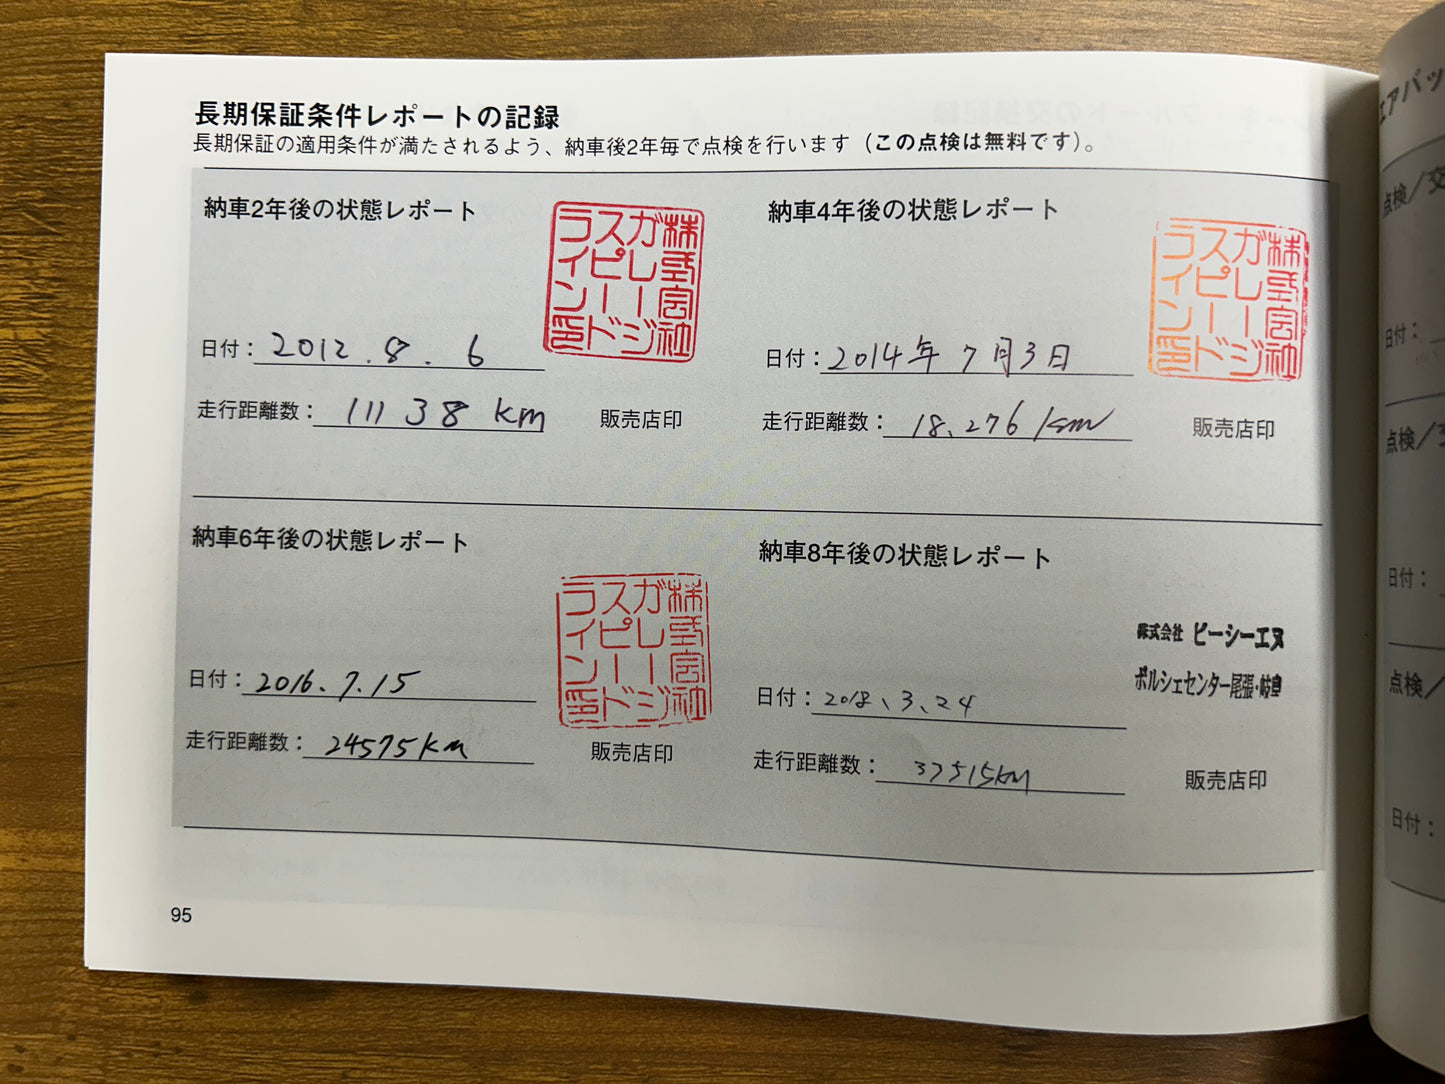 長期保証条件レポートの記録
長期保証の適用条件が満たされるよう、納車後2年毎で点検を行います（この点検は無料です）。
納車2年後の状態レポート
株式会社
ガレージ
スピード
ライン印
日付：2012.8.6
走行距離数：11138 km
販売店印
納車4年後の状態レポート
株式会社
ガレージ
スピード
ライン印
日付：2014年7月3日
走行距離数：18,276 km
販売店印
納車6年後の状態レポート
株式会社
ガレージ
スピード
ライン印
日付：2016.7.15
走行距離数：24575km
販売店印
納車8年後の状態レポート
株式会社 ピーシーエヌ
ポルシェセンター尾張・岐阜
日付：2018.3.24
走行距離数：37515km
販売店印
95
エアバッ
点検／交
日付：
点検／交
日付：
点検／
日付：